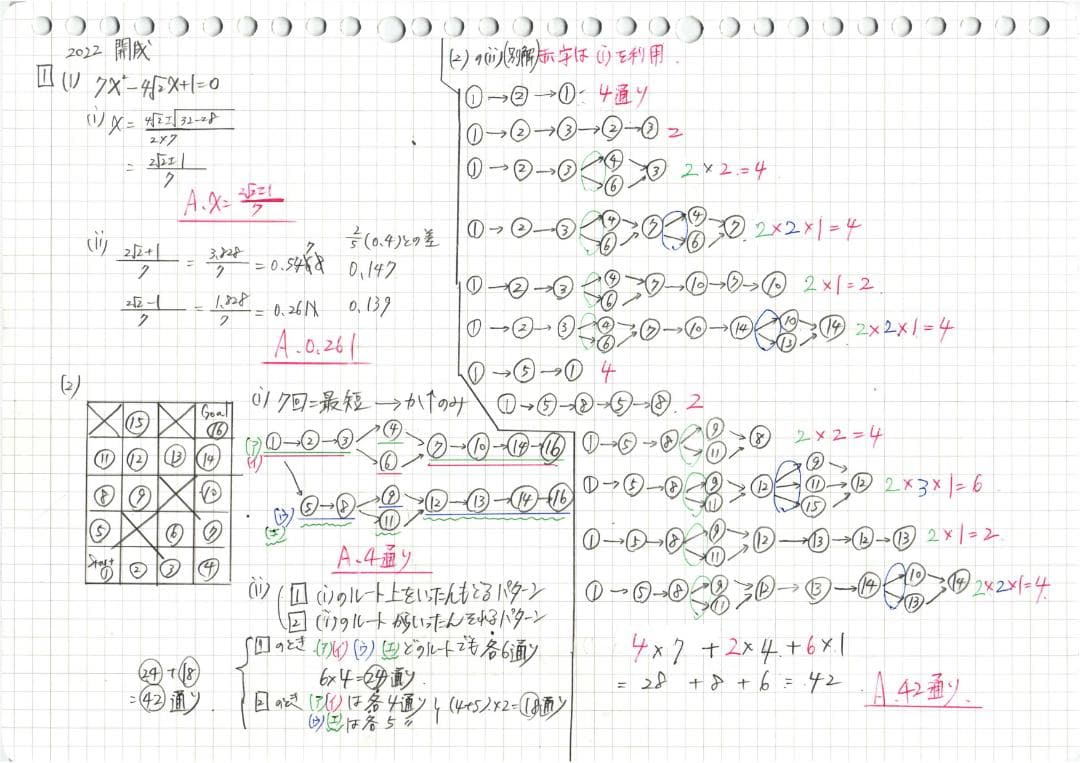 2022 開成
1 (1) 7x²-4√2x+1=0
(i) x = (4√2±√(32-28))/(2×7)
= (2√2±1)/7
A. x = (2√2±1)/7
(ii) (2√2+1)/7 = 3.828/7 = 0.5468 7
2/5 (0.4)との差
0.147
(2√2-1)/7 = 1.828/7 = 0.261
0.139
A. 0.261
(2)
⑮ Goal ⑯
⑪ ⑫ ⑬ ⑭
⑧ ⑨ ⑩
⑤ ⑥ ⑦
Start ① ② ③ ④
(i) 7回=最短 →か↑のみ
(ア) (イ) ①→②→③ ④ ⑥ ⑦→⑩→⑭→⑯
(ウ) (エ) ⑤→⑧ ⑨ ⑪ ⑫→⑬→⑭→⑯
A. 4通り
(ii) 1 (i)のルート上をいったんもどるパターン
2 (i)のルートからいったんそれるパターン
1 のとき (ア)(イ)(ウ)(エ)どのルートでも各6通り
6×4=24通り
2 のとき (ア)(イ)は各4通り (4+5)×2=18通り
(ウ)(エ)は各5〃
24+18
=42通り
(2)の(ii)(別解)赤字は(i)を利用.
①→②→①: 4通り
①→②→③→②→③ 2
①→②→③ ④ ⑥ ③ 2×2=4
①→②→③ ④ ⑥ ⑦ ④ ⑥ ⑦ 2×2×1=4
①→②→③ ④ ⑥ ⑦→⑩→⑦→⑩ 2×1=2
①→②→③ ④ ⑥ ⑦→⑩→⑭ ⑩ ⑬ ⑭ 2×2×1=4
①→⑤→① 4
①→⑤→⑧→⑤→⑧. 2
①→⑤→⑧ ⑨ ⑪ ⑧ 2×2=4
①→⑤→⑧ ⑨ ⑪ ⑫ ⑨ ⑪ ⑮ ⑫ 2×3×1=6
①→⑤→⑧ ⑨ ⑪ ⑫→⑬→⑫→⑬ 2×1=2
①→⑤→⑧ ⑨ ⑪ ⑫→⑬→⑭ ⑩ ⑬ ⑭ 2×2×1=4
4×7+2×4+6×1
= 28+8+6=42
A. 42通り.